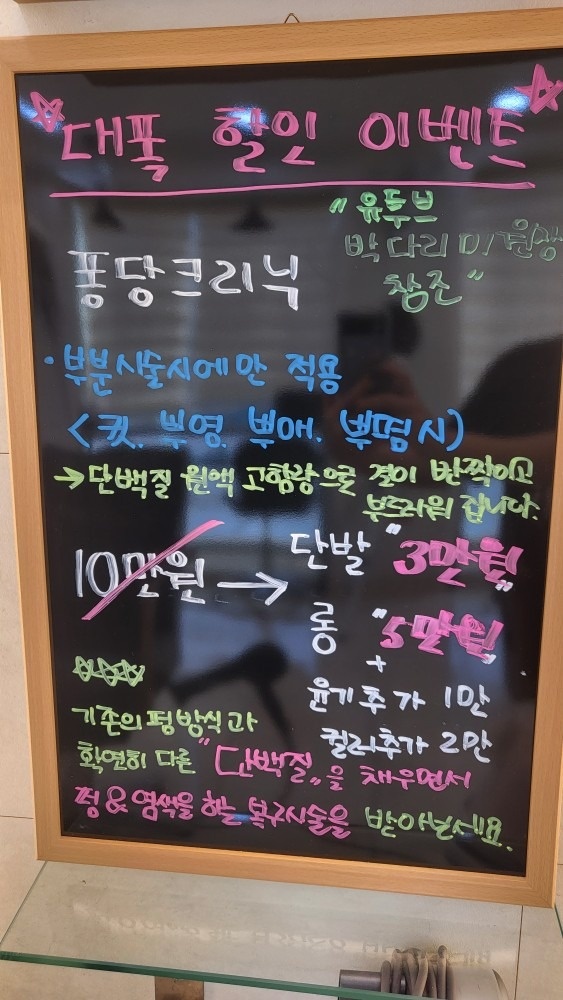 대폭 할인 이벤트
"유튜브
박다리미 원장
참조"
퐁당크리닉
· 부분시술시에만 적용
<컷, 뿌염, 뿌매, 뿌펌시>
→ 단백질 원액 고함량으로 결이 반짝이고
부드러워 집니다.
10만원 → 단발 "3만원"
롱 "5만원"
+
윤기추가 1만
컬러추가 2만
기존의 펌방식과
확연히 다른 "단백질"을 채우면서
펌 & 염색을 하는 복구시술을 받아보세요.